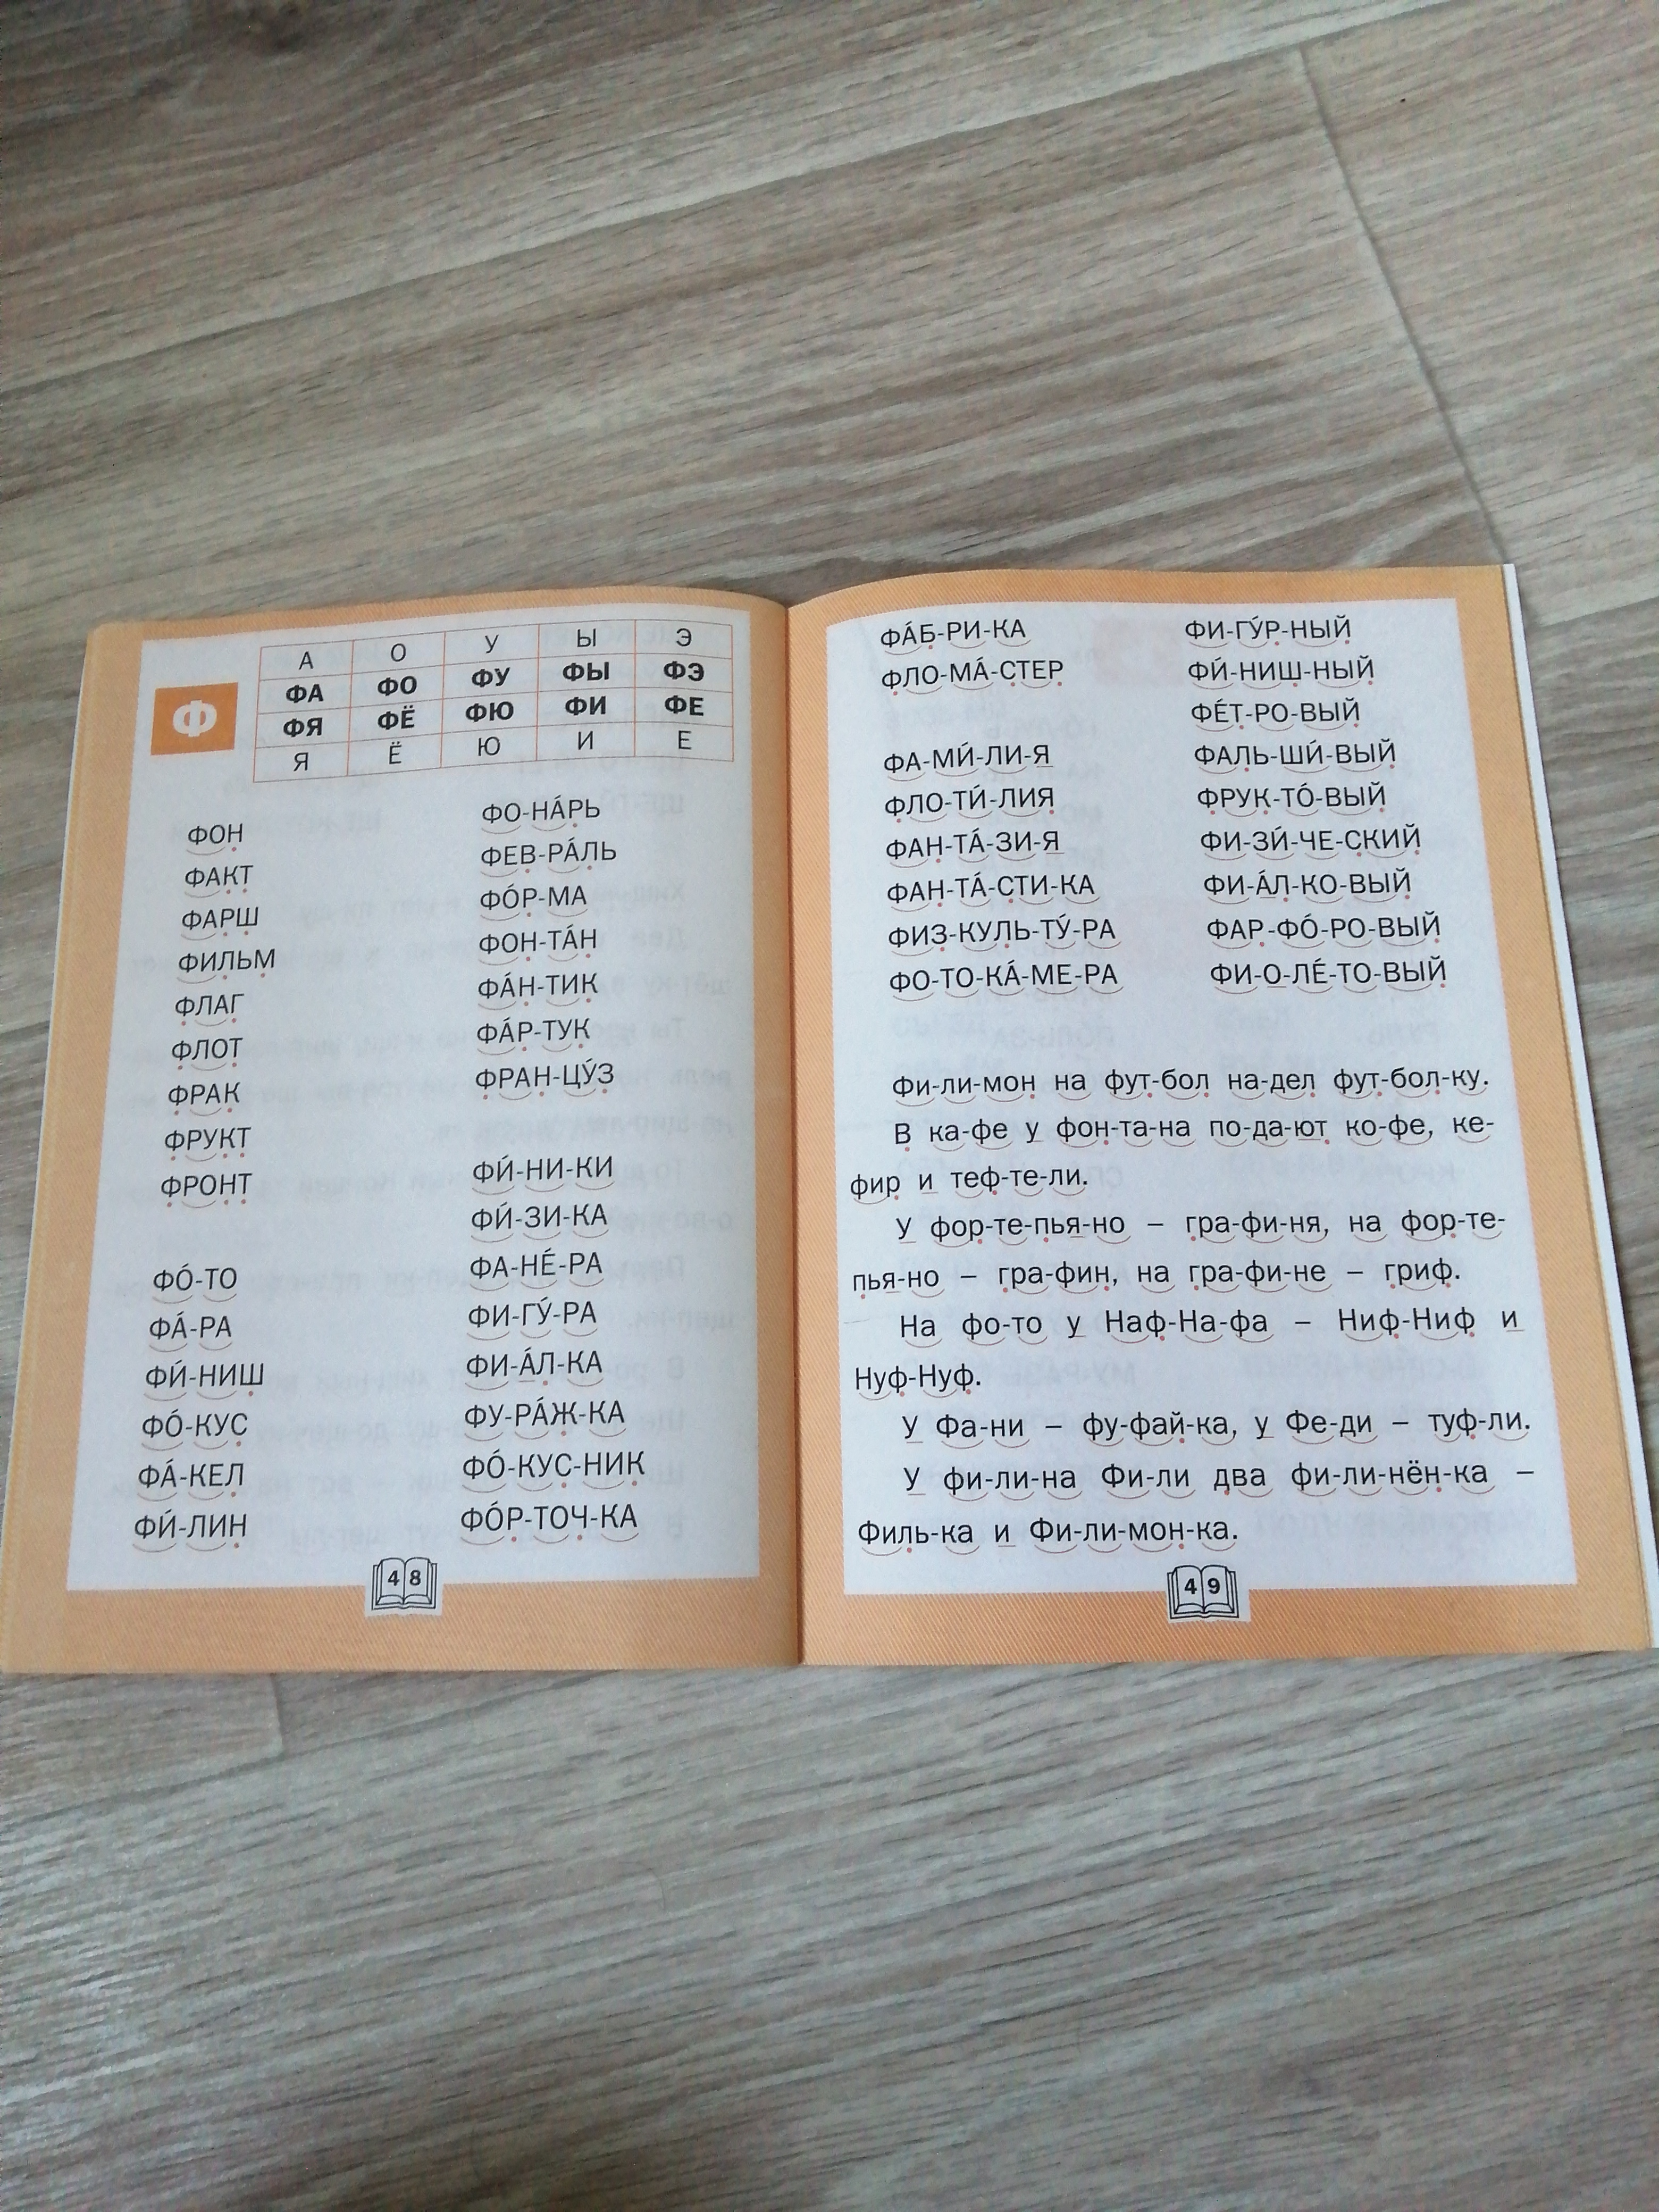 А О У Ы Э
ФА ФО ФУ ФЫ ФЭ
Ф
ФЯ ФЁ ФЮ ФИ ФЕ
Я Ё Ю И Е
ФОН
ФАКТ
ФАРШ
ФИЛЬМ
ФЛАГ
ФЛОТ
ФРАК
ФРУКТ
ФРОНТ
ФО́-ТО
ФА́-РА
ФИ́-НИШ
ФО́-КУС
ФА́-КЕЛ
ФИ́-ЛИН
ФО-НА́РЬ
ФЕВ-РА́ЛЬ
ФО́Р-МА
ФОН-ТА́Н
ФА́Н-ТИК
ФА́Р-ТУК
ФРАН-ЦУ́З
ФИ́-НИ-КИ
ФИ́-ЗИ-КА
ФА-НЕ́-РА
ФИ-ГУ́-РА
ФИ-А́Л-КА
ФУ-РА́Ж-КА
ФО́-КУС-НИК
ФО́Р-ТОЧ-КА
48
ФА́Б-РИ-КА
ФЛО-МА́-СТЕР
ФА-МИ́-ЛИ-Я
ФЛО-ТИ́-ЛИЯ
ФАН-ТА́-ЗИ-Я
ФАН-ТА́-СТИ-КА
ФИЗ-КУЛЬ-ТУ́-РА
ФО-ТО-КА́-МЕ-РА
ФИ-ГУ́Р-НЫЙ
ФИ́-НИШ-НЫЙ
ФЕ́Т-РО-ВЫЙ
ФАЛЬ-ШИ́-ВЫЙ
ФРУК-ТО́-ВЫЙ
ФИ-ЗИ́-ЧЕ-СКИЙ
ФИ-А́Л-КО-ВЫЙ
ФАР-ФО́-РО-ВЫЙ
ФИ-О-ЛЕ́-ТО-ВЫЙ
Фи-ли-мон на фут-бол на-дел фут-бол-ку.
В ка-фе у фон-та-на по-да-ют ко-фе, ке-
фир и теф-те-ли.
У фор-те-пья-но – гра-фи-ня, на фор-те-
пья-но – гра-фин, на гра-фи-не – гриф.
На фо-то у Наф-На-фа – Ниф-Ниф и
Нуф-Нуф.
У Фа-ни – фу-фай-ка, у Фе-ди – туф-ли.
У фи-ли-на Фи-ли два фи-ли-нён-ка –
Филь-ка и Фи-ли-мон-ка.
49